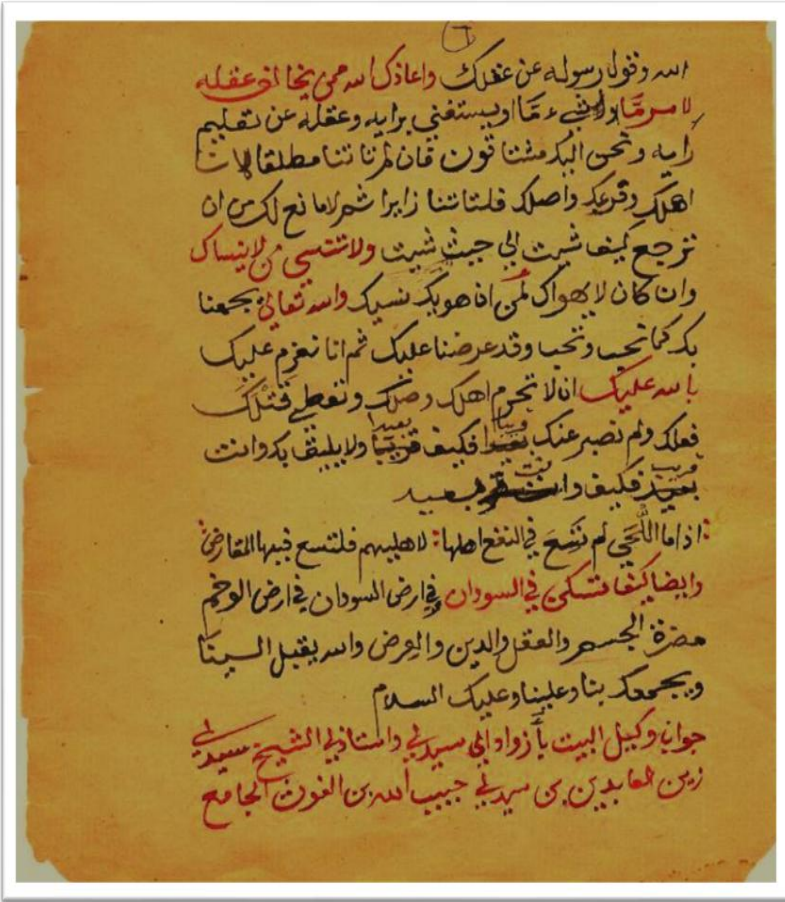 الله وقول رسوله عن عقلك واعاذك الله ممن يخالف عقله
لامر مّا ولشيء مّا ويستغني برايه وعقله عن تقليم
رايه ونحن اليك مشتاقون فان لم تاتنا مطلقا لإتـ
اهلك وقرعك واصلك فلتاتنا زايرا ثم لا مانع لك من ان
ترجع كيف شيت الي حيث شيت ولا تنسي من لاينساك
وان كان لا يهواك لمن اذا هويك نسيك والله تعالي يجمعنا
بك كما تحب ونحب وقد عرضنا عليك ثم انا نعزم عليك
بالله عليك ان لا تحرم اهلك وصلك وتعطي قتلك
فعلك ولم نصبر عنك قريبا فكيف بعيدا ولا يليق بك وانت
قريب فكيف وانت بعيد
اذا ما اللّحي لم تسع في النفع اهلها: لاهليهم فلتسع فيها المقارض
وايضا كيف تسكن في السودان في ارض السودان في ارض الوخم
مضرة الجسم والعقل والدين والعرض والله يقبل السينا
ويجمعك بنا وعلينا وعليك السلام
جواب وكيل البيت بأزواد الي سيدي واستاذي الشيخ سيدي
زين العابدين بن سيدي حبيب الله بن الغوث الجامع